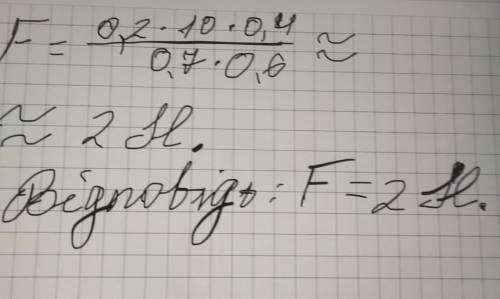 F = 0,2 · 10 · 0,4 / 0,7 · 0,6 ≈
≈ 2 Н.
Відповідь: F = 2 Н.